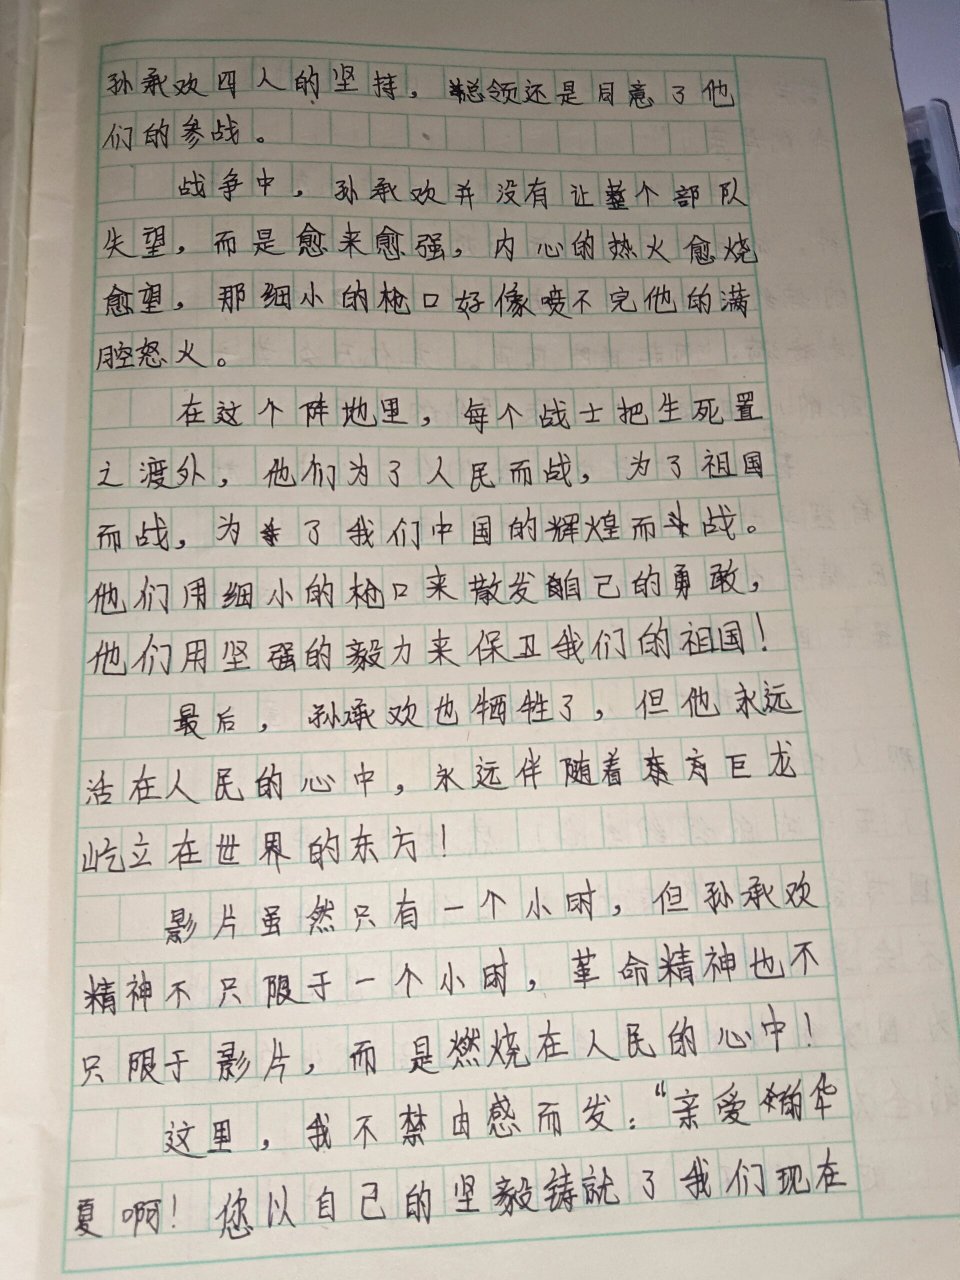 孙承欢四人的坚持，总领还是同意了他
们的参战。
战争中，孙承欢并没有让整个部队
失望，而是愈来愈强，内心的热火愈烧
愈望，那细小的枪口好像喷不完他的满
腔怒火。
在这个阵地里，每个战士把生死置
之渡外，他们为了人民而战，为了祖国
而战，为了我们中国的辉煌而战。
他们用细小的枪口来散发自己的勇敢，
他们用坚强的毅力来保卫我们的祖国！
最后，孙承欢也牺牲了，但他永远
活在人民的心中，永远伴随着东方巨龙
屹立在世界的东方！
影片虽然只有一个小时，但孙承欢
精神不只限于一个小时，革命精神也不
只限于影片，而是燃烧在人民的心中！
这里，我不禁由感而发：“亲爱的华
夏啊！您以自己的坚毅铸就了我们现在